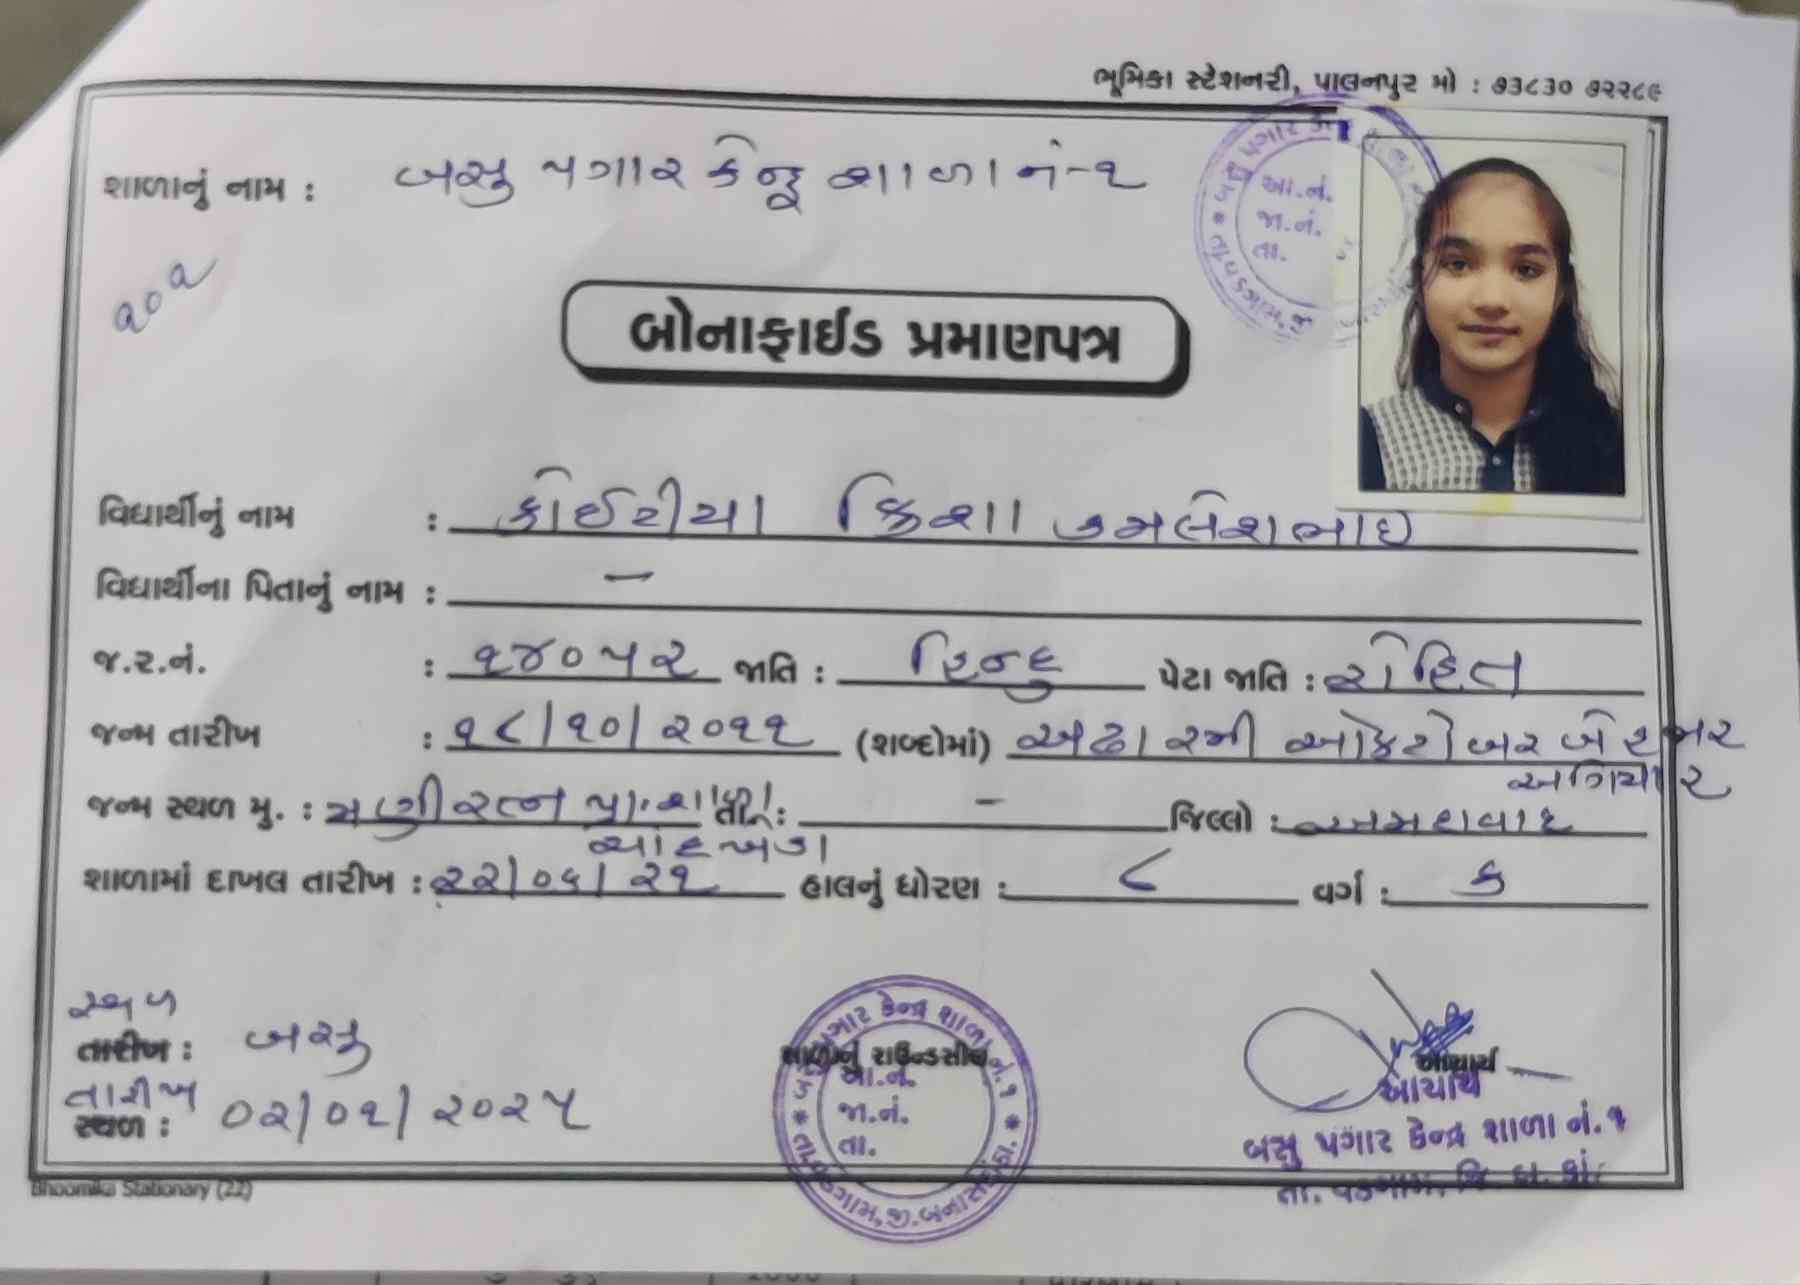 ભૂમિકા સ્ટેશનરી, પાલનપુર મો : ૭૩૮૩૦ ૭૨૨૮૯
શાળાનું નામ : બસુ પગાર કેન્દ્ર શાળા નં-૧
આ.નં.
જા.નં.
તા.
૨૦૨
બોનાફાઈડ પ્રમાણપત્ર
વિદ્યાર્થીનું નામ : કોઈટીયા ક્રિશા કમલેશભાઇ
વિદ્યાર્થીના પિતાનું નામ : –
જ.ર.નં. : ૧૪૦૫૨ જાતિ : હિન્દુ પેટા જાતિ : રોહિત
જન્મ તારીખ : ૧૮/૧૦/૨૦૧૧ (શબ્દોમાં) અઢારમી ઓક્ટોબર બે હજાર
અગિયાર
જન્મ સ્થળ મુ. : મણીરત્ન પ્રા.શાળા : – જિલ્લો : અમદાવાદ
ચાંદખેડા
શાળામાં દાખલ તારીખ : ૨૨/૦૬/૨૧ હાલનું ધોરણ : ૮ વર્ગ : ક
સ્થળ
તારીખ : બસુ
તારીખ
સ્થળ : ૦૨/૦૧/૨૦૨૫
બસુ પગાર કેન્દ્ર શાળા નં.૧ * તા.વડગામ,જી.બનાસકાંઠા. *
શાળાનું રાઉન્ડસીલ
આ.નં.
જા.નં.
તા.
આચાર્ય
આચાર્ય
બસુ પગાર કેન્દ્ર શાળા નં.૧
તા. વડગામ, જિ. બ. કાં.
Bhoomika Stationary (22)